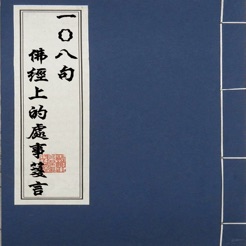 一〇八句
佛經上的處事箴言